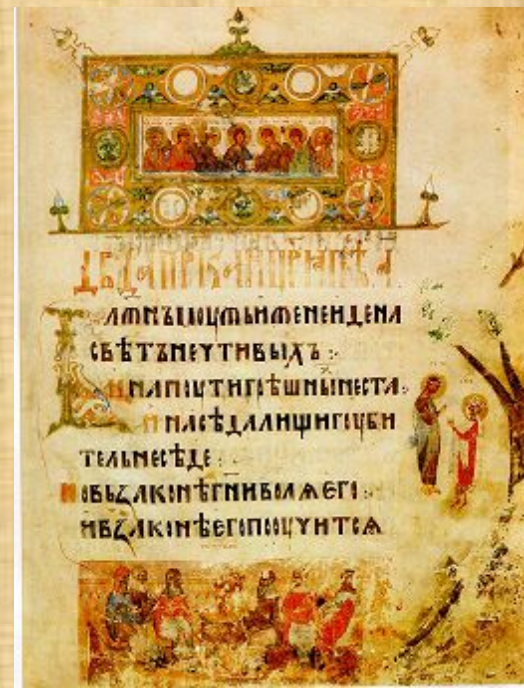 БЛЖНЪМОУЖЬИЖЕНЕИДЕНА
СВѢТЪНЕЧТИВЫХЪ :·
ИНАПОУТИГРѢШНЫНЕСТА:
ИНАСѢДАЛИЩИГОУБИ
ТЕЛЬНЕСѢДЕ :
НОВЬЗАКОНѢГНИВОЛѦЕГО :·
ИВЗАКОНѢЕГОПООУЧИТСѦ